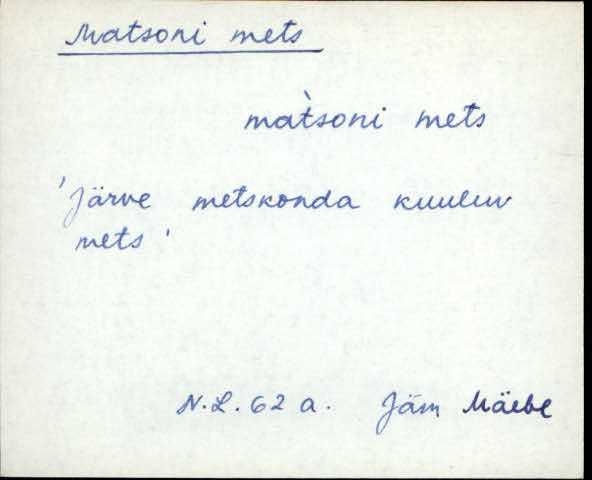 Matsoni mets
mat̀soni mets
'Järve metskonda kuuluv
mets'
N.L. 62 a. Jäm Mäebe